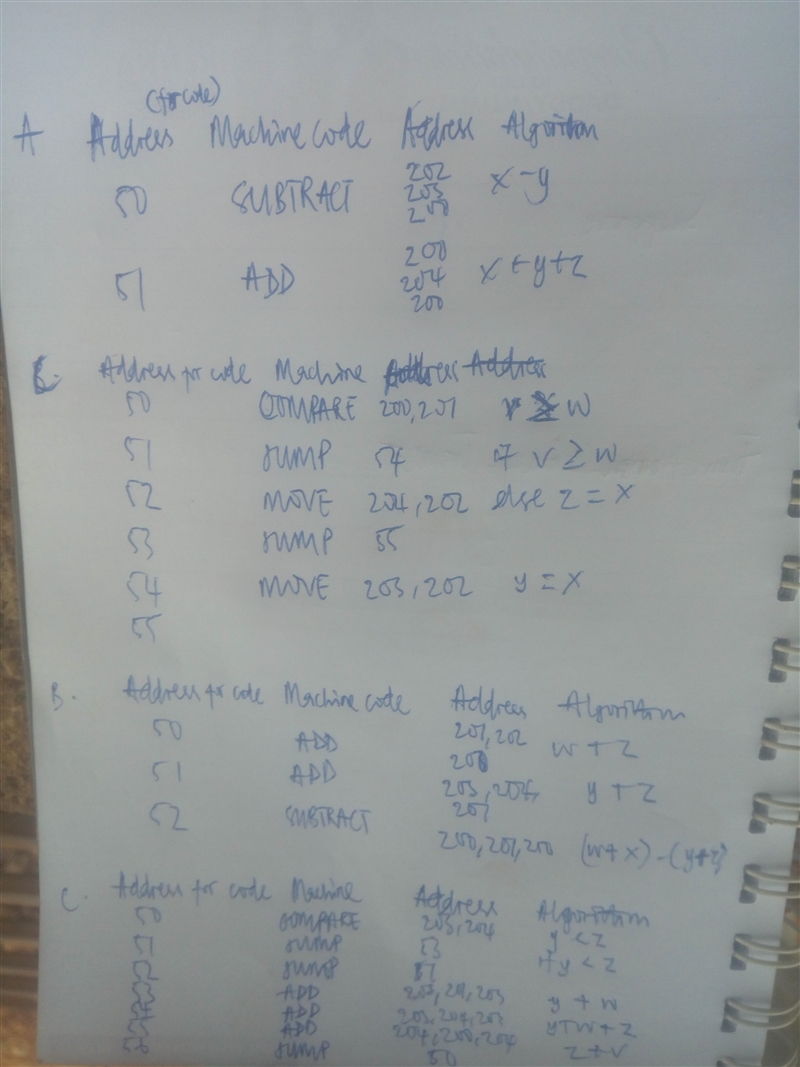 (for code)
A Address Machine code Address Algorithm
50 SUBTRACT 202 203 200 x - y
51 ADD 200 204 200 x + y + z
Address for code Machine Address Address
50 COMPARE 200, 201 v ≥ w
51 JUMP 54 if v ≥ w
52 MOVE 204, 202 else z = x
53 JUMP 55
54 MOVE 203, 202 y = x
55
B. Address for code Machine code Address Algorithm
50 ADD 201, 202 200 w + z
51 ADD 203, 204, 201 y + z
52 SUBTRACT 200, 201, 200 (w + x) - (y + z)
C. Address for code Machine Address Algorithm
50 COMPARE 203, 204 y < z
51 JUMP 53 if y < z
52 JUMP 57
53 ADD 203, 201, 203 y + w
54 ADD 203, 204, 203 y + w + z
55 ADD 204, 200, 204 z + v
56 JUMP 50